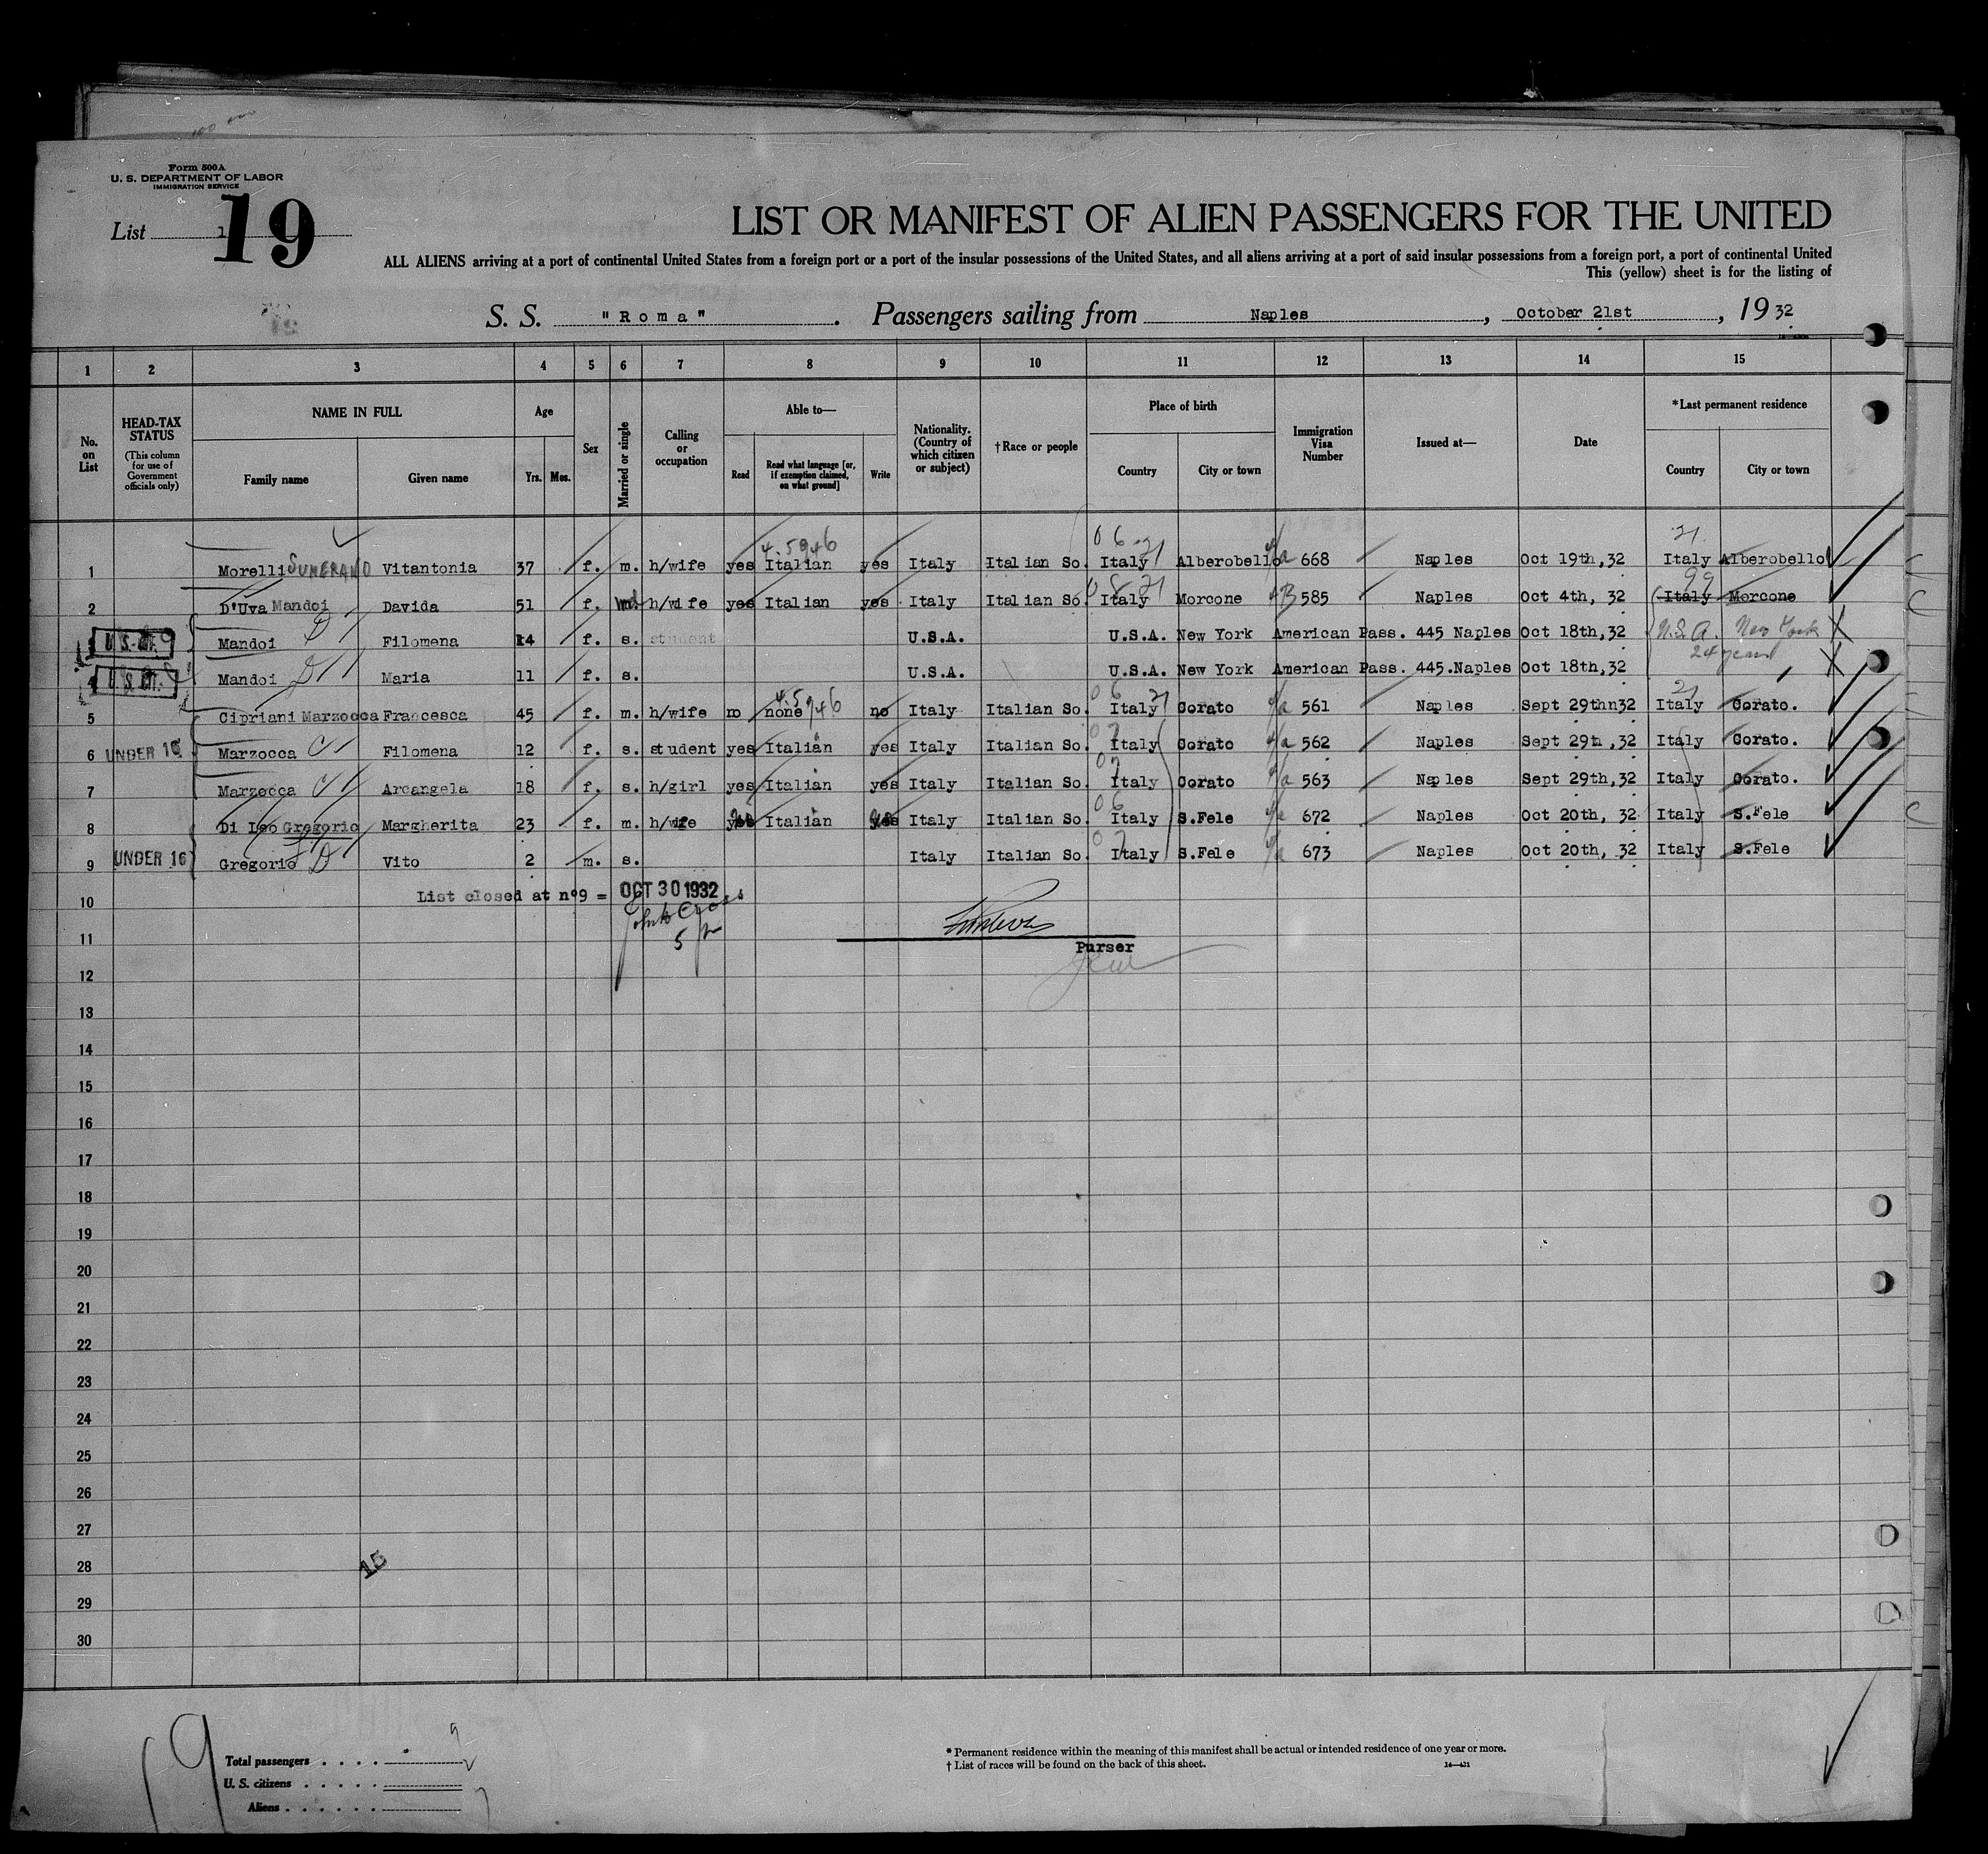 Form 500A
U. S. DEPARTMENT OF LABOR
IMMIGRATION SERVICE
List 19
LIST OR MANIFEST OF ALIEN PASSENGERS FOR THE UNITED
ALL ALIENS arriving at a port of continental United States from a foreign port or a port of the insular possessions of the United States, and all aliens arriving at a port of said insular possessions from a foreign port, a port of continental United
This (yellow) sheet is for the listing of
S. S. "Roma". Passengers sailing from Naples, October 21st, 1932
1 2 3 4 5 6 7 8 9 10 11 12 13 14 15
No. on List
HEAD-TAX STATUS (This column for use of Government officials only)
NAME IN FULL
Family name Given name
Age
Yrs. Mos.
Sex
Married or single
Calling or occupation
Able to—
Read Read what language [or, if exemption claimed, on what ground] Write
Nationality. (Country of which citizen or subject)
†Race or people
Place of birth
Country City or town
Immigration Visa Number
Issued at—
Date
*Last permanent residence
Country City or town
4.5946 06 21 21
1 Morelli SUMERANO Vitantonia 37 f. m. h/wife yes Italian yes Italy Italian So. Italy Alberobello 668 Naples Oct 19th,32 Italy Alberobello
08 21 99
2 D'Uva Mandoi Davida 51 f. wd h/wife yes Italian yes Italy Italian So. Italy Morcone 585 Naples Oct 4th, 32 Italy Morcone
U.S. CIT. Mandoi D Filomena 14 f. s. student U.S.A. U.S.A. New York American Pass. 445 Naples Oct 18th,32 U.S.A. New York
24 years
4 U.S. CIT. Mandoi D Maria 11 f. s. U.S.A. U.S.A. New York American Pass. 445.Naples Oct 18th,32
4.5946 06 21 21
5 Cipriani Marzocca Francesca 45 f. m. h/wife no none no Italy Italian So. Italy Corato 561 Naples Sept 29thn32 Italy Corato.
07
6 UNDER 16 Marzocca C Filomena 12 f. s. student yes Italian yes Italy Italian So. Italy Corato 562 Naples Sept 29th,32 Italy Corato.
07
7 Marzocca C Arcangela 18 f. s. h/girl yes Italian yes Italy Italian So. Italy Corato 563 Naples Sept 29th,32 Italy Corato.
06
8 Di Leo Gregorio Margherita 23 f. m. h/wife yes Italian yes Italy Italian So. Italy S.Fele 672 Naples Oct 20th, 32 Italy S.Fele
07
9 UNDER 16 Gregorio D Vito 2 m. s. Italy Italian So. Italy S.Fele 673 Naples Oct 20th, 32 Italy S.Fele
10 List closed at n°9 = OCT 30 1932
11
Purser
12
13
14
15
16
17
18
19
20
21
22
23
24
25
26
27
28 15
29
30
9
Total passengers . . . . 9
U. S. citizens . . . . .
Aliens . . . . . .
* Permanent residence within the meaning of this manifest shall be actual or intended residence of one year or more.
† List of races will be found on the back of this sheet.